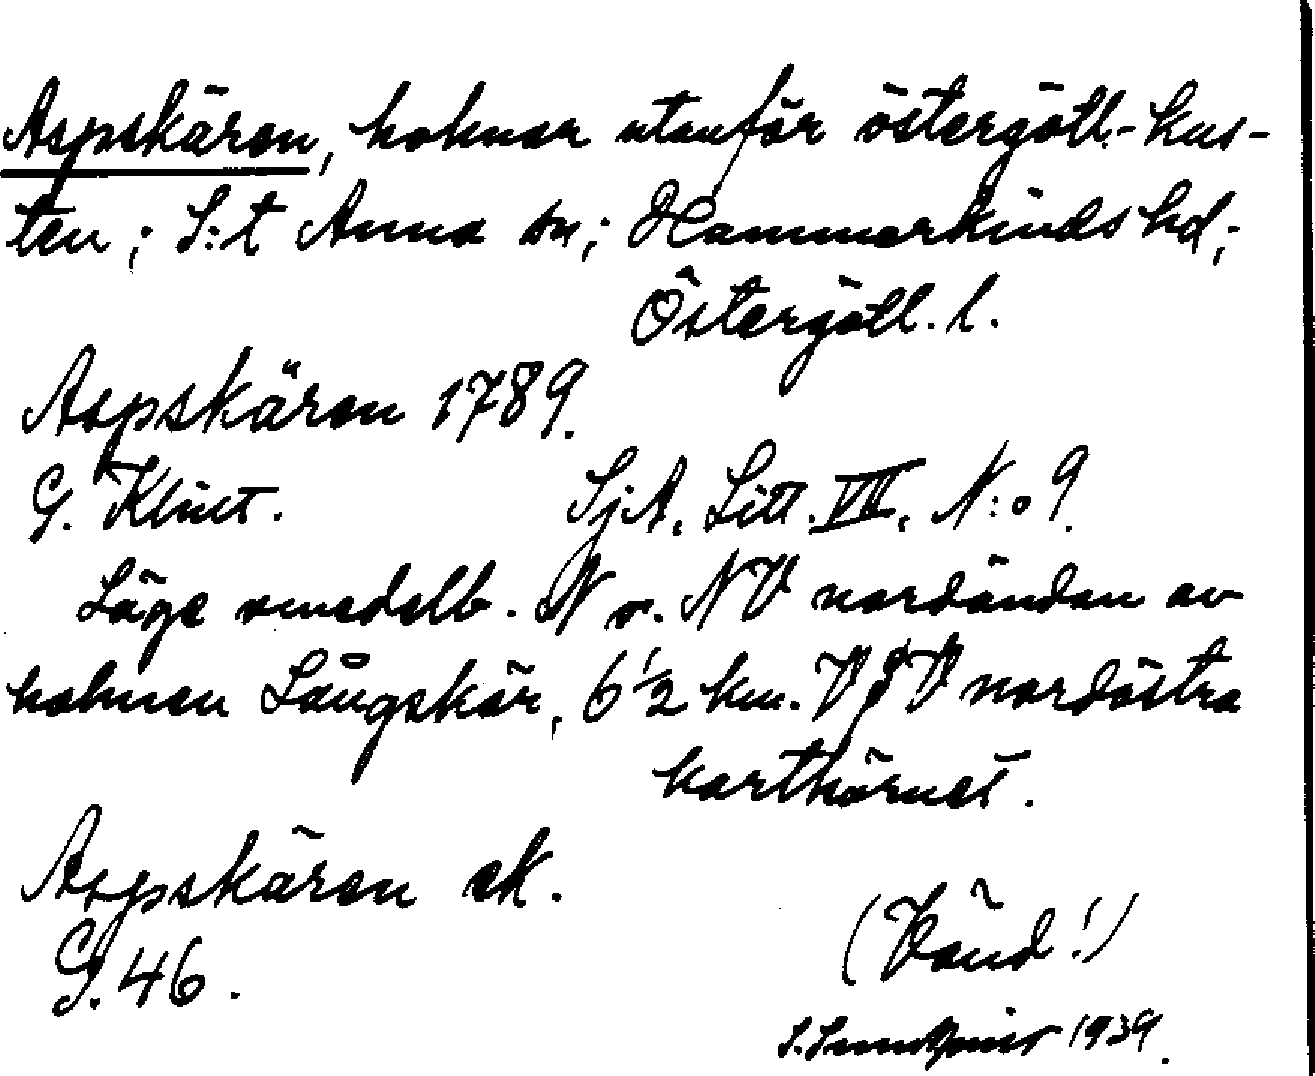 Aspskären, holmar utanför östergötl. kus-
ten; S:t Anna sn; Hammarkinds hd;
Östergötl. l.
Aspskären 1789.
G. Klint. SjA. Litt. VII. N:o 9.
Läge omedelb. N o. NV nordändan av
holmen Långskär, 6 1/2 km. V t V nordöstra
karthörnet.
Aspskären ek.
G. 46.
(Vänd!)
1939.